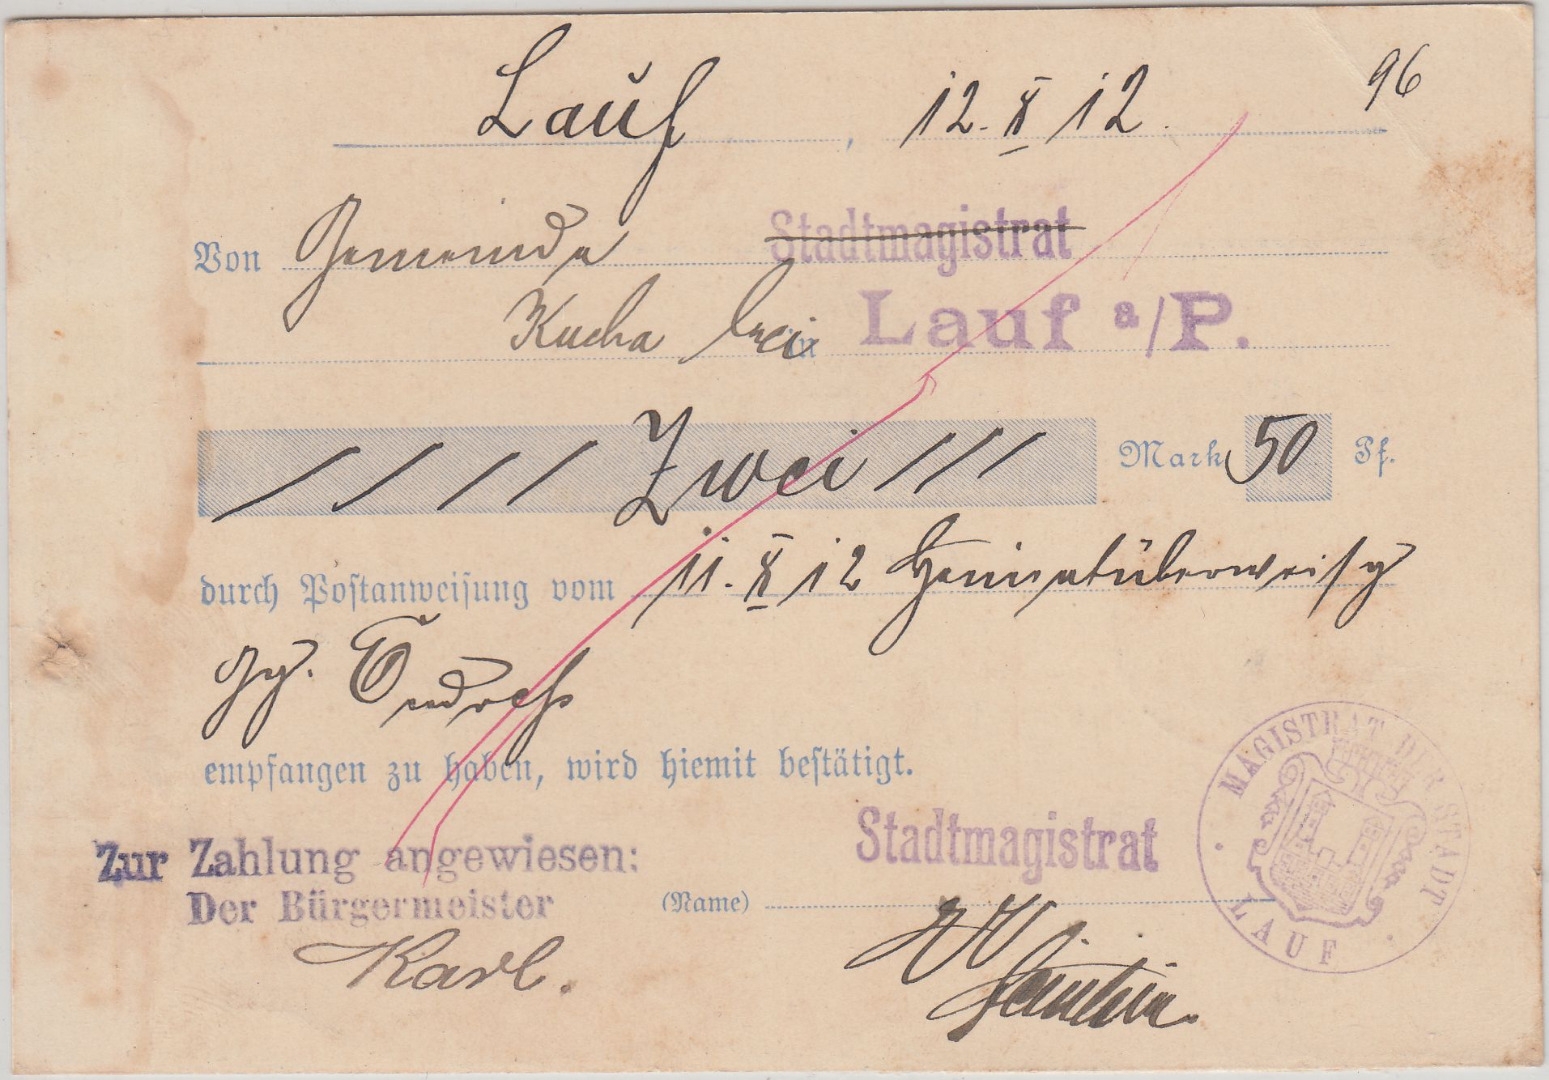 Lauf, 12. X 12. 96
Von Gemeinde Stadtmagistrat
Kucha bei Lauf a/P.
//// Zwei /// Mark 50 Pf.
durch Postanweisung vom 11. X 12 Heimatüberweisg
Gg. Endreß
empfangen zu haben, wird hiemit bestätigt.
Zur Zahlung angewiesen: Stadtmagistrat
Der Bürgermeister (Name)
Karl.
MAGISTRAT DER STADT LAUF